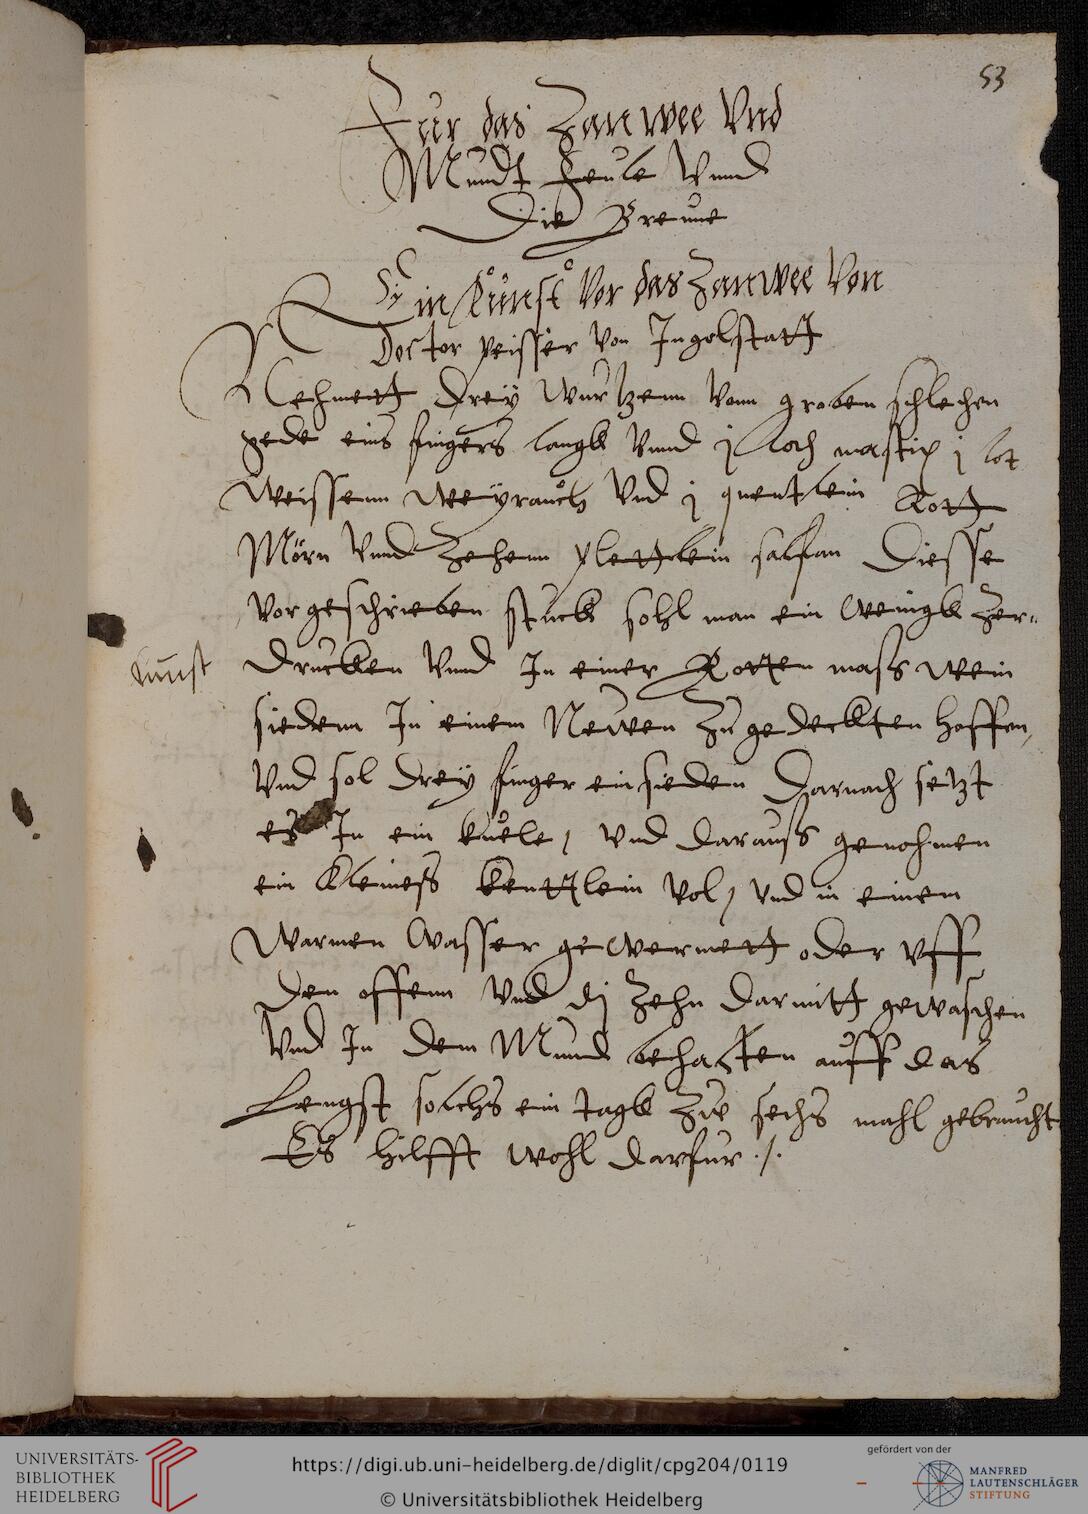 53
Fur das Zanwee Vnd
Mundt feule Vnnd
Die Breune
Ein Kunst Vor das Zanwee Von
Doctor peisser von Ingolstatt
Nehmett Drey Wurtzenn Vonn groben schlehen
yede eins fingers langk Vnnd j loth mastix j lot
Weissenn Weyrauch Vnd j quentlein Rott
Mörn Vnnd Zehenn plettlein salfan Diesse
vorgeschrieben stuck sohl man ein Wenigk Zer„
Kunst
Drucken Vnnd In einer Rotten mass wein
siedenn In einem Neuen Zugedeckten Hoffen,
Vnd sol drey finger einsieden Darnach setzt
es In ein kuele / vnd darauss genohmen
ein Kleiness kenttlein vol / vnd in einem
Warmen Wasser gewermett oder vff
Den offenn Vnd di Zehn darmitt gewaschen
Vnd In dem Mund behalten auff das
Lengst solchs ein tagk Zue sechs mahl gebraucht
Es hilfft wohl darfur ./.
UNIVERSITÄTS-
BIBLIOTHEK
HEIDELBERG
https://digi.ub.uni-heidelberg.de/diglit/cpg204/0119
© Universitätsbibliothek Heidelberg
gefördert von der
MANFRED
LAUTENSCHLÄGER
STIFTUNG